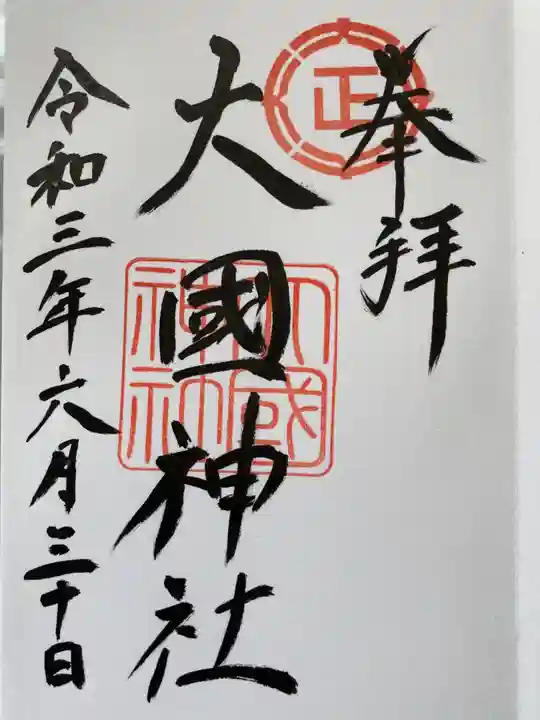 奉拝
正
大國神社
大國
神社
令和三年六月三十日